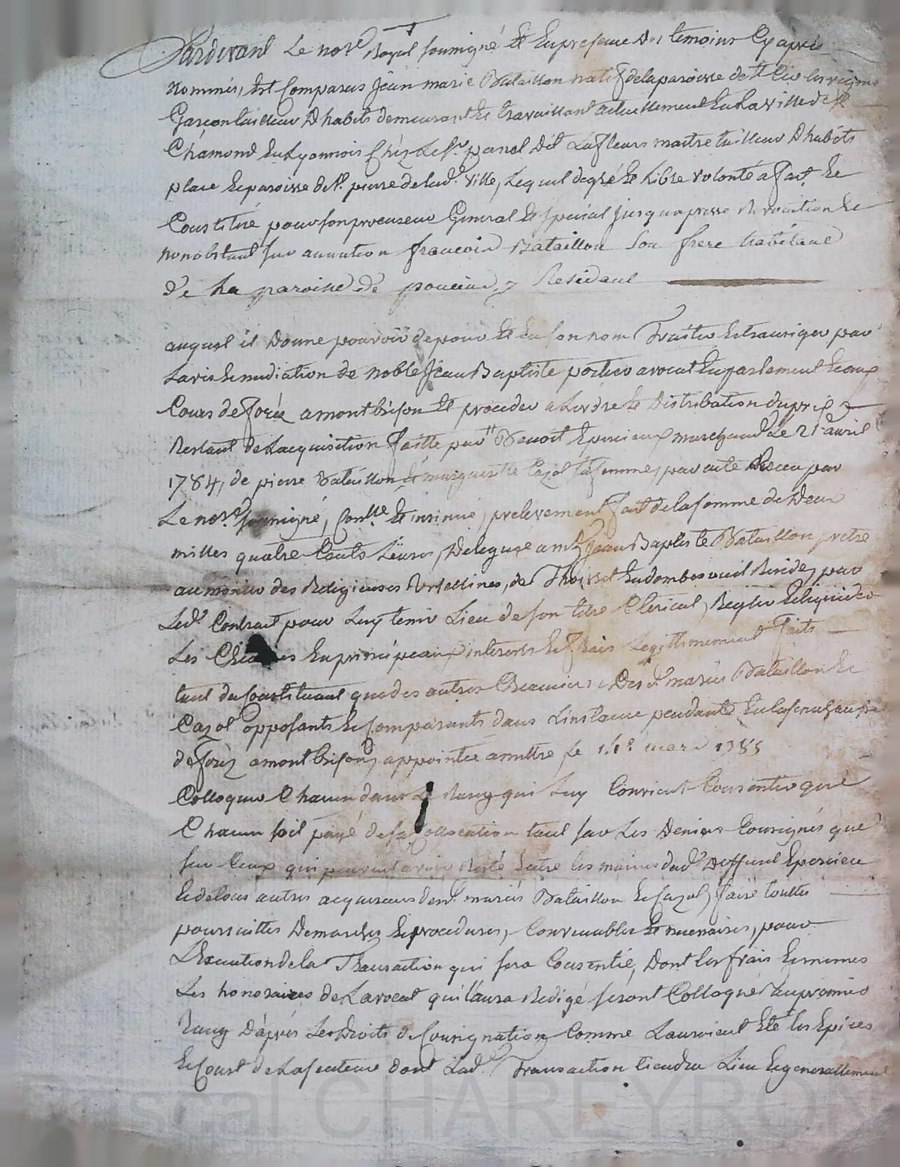 Pardevant Le no.re Royal soussigné Et En presence Des temoins Cy apres
Nommés, Est Comparus Jean marie Bataillon natif de la paroisse de
Garçon tailleur D habits demeurant Et travaillant actuellement En La ville de St
Chamond En Lyonnois Chez Le Sr. panel Dit Lafleur maitre tailleur D habits
place Et paroisse de St. pierre de lad. Ville, Lequel de gré Et Libre volonté a fait Et
Constitué pour son procureur General Et special Jusqu a presse Revocation Et
nonobstant sur annation francois Bataillon son frere habitant
de La paroisse de y Residant
auquel il Donne pouvoir de pour Et En son nom Traiter Et transiger par
Lavis Et mediation de noble Jean Baptiste portier avocat En parlement Et aux
Cours de forez a montbrison Et proceder a Lordre Et Distribution du prix
Restant de Lacquisition faitte par Sr Benoit Epercieux marchand Le 21 avril
1784, de pierre Bataillon Et marguerite Cazot sa femme, par acte Receu par
Le no.re soussigné, Conllé Et insinué, prelevement fait de la somme de Deux
milles quatre Cents Livres, Deleguée a mre Jean Baptiste Bataillon pretre
aumonier des Religieuses Urselines, de Thoissei En dombes ou il Reside, par
Led. Contrat pour Luy tenir Lieu de son titre Clerical, Regler Et liquider
Les Creances En principeaux interets Et frais Legittimement faits
tant du Constituant que des autres Creanciers Des d. mariés Bataillon Et
Cazot opposants Et Comparants dans Linstance pendante En La senechaussée
de forez a montbrison, appointée a mettre le 11e mars 1785
Colloquer Chacun dans Le Rang qui Luy Convient Consentir que
Chacun soit payé de sa Collocation tant sur Les Deniers Consignés que
sur Ceux qui peuvent avoir Resté Entre les mains dud. Epercieux
Et de tous autres acquereurs desd. mariés Bataillon Et Cazot, faire touttes
poursuittes Demarches Et procedures, Convenables Et necessaires, pour
LExecution de La Transaction qui sera Consentie, Dont les frais Et memes
Les honoraires de Lavocat qui Laura Redigé seront Colloqués au premier
Rang D apres Les Droits de Consignation Comme Lauroient Eté les Epices
Et Cout de La sentence dont Lad. Transaction tiendra Lieu Et generallement
Pascal CHAREYRON